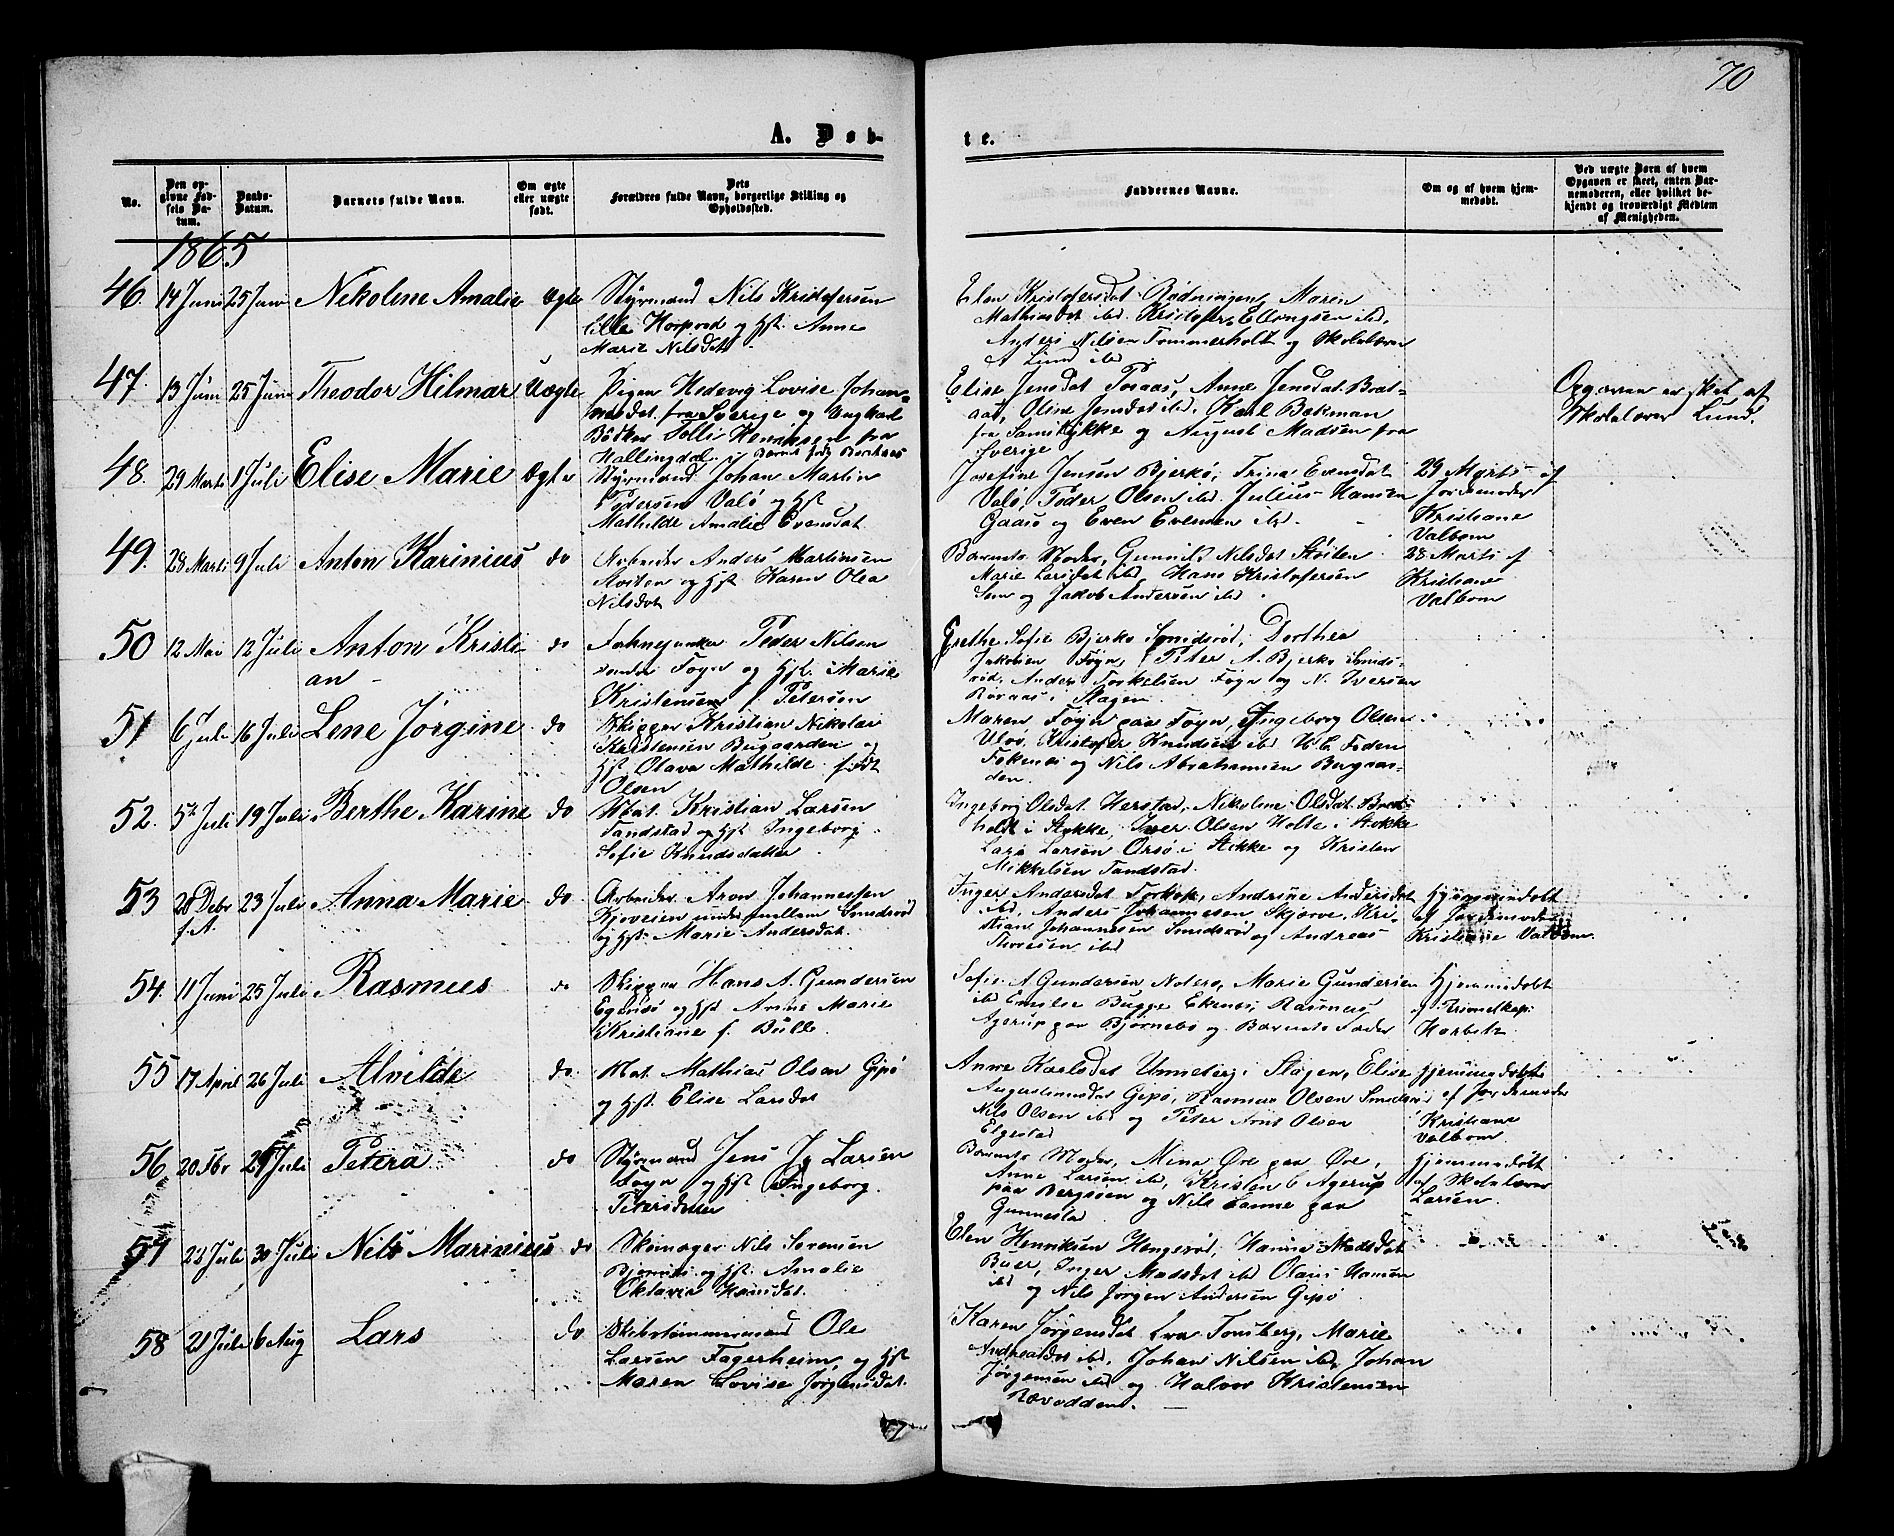 70
A. Døb-
te.
No.
Den op-
givne Fød-
sels Da-
tum.
Daabs-
Datum.
Barnets fulde Navn.
Om ægte
eller uægte
født.
Dets
Forældres fulde Navn, borgerlige Stilling og
Opholdssted.
Faddernes Navne.
Om og af hvem hjem-
medøbt.
Ved uægte Børn af hvem
Opgaven er skeet, enten Bar-
nemoderen, eller hvilket be-
kjendt og troværdigt Medlem
af Menigheden.
1865
46. 14 Juni 25 Juni Nikoline Amalie Ægte
Styrmand Nils Kristofersen
lille og Hst. Anne
Marie Nilsdatt.
Elen Kristofersdat Rødningen, Maren
Mathiasdat ibd, Kristofer Ellingsen ibd,
Anders Nilsen Tommerholt og Skolelærer
A Lund ibd
47. 13 Juni 25 Juni Theodor Hilmar Uægte
Pigen Hedevig Lovise Johan-
nesdat. fra Sverige og Ungkarl
Bødker Henriksen fra
Hallingdal.
Elise Jensdat, Anne Jensdat
Oline Jensdat ibd, Karl Bekman
fra og August Madsen fra
Sverige
Opgaven er sket af
Skolelærer Lund.
48. 29 Marts 1 Juli Elise Marie Ægte
Styrmand Johan Martin
Pedersen Valø og Hst
Mathilde Amalie Evensdat.
Josefine Jensen Bjerkø, Trina Evensdat
Valø, Peder Olsen ibd. Julius Hansen
Gaasø og Even Evensen ibd.
29 Marts af
Jordemoder
Kristiane
Valbom
49. 28 Marts 9 Juli Anton Karinius do
Arbeider Anders Martinsen
og Hst. Karen Olea
Nilsdat
Barnets Moder, Gunnild Nilsdat Støiten
Marie Larsdat ibd, Hans Kristofersen
Sem og Jakob Andersen ibd.
28 Marts af
Kristiane
Valbom
50 12 Mai 12 Juli Anton Kristi-
an
do
Fahnejunker Peder Nilsen
søndre Føyn og Hst. Marie
Kristensen f. Petersen
Grethe Sofie Bjerke Smidsrød, Dorthea
Jakobsen Føyn, Peter A. Bjerke Smids-
rød, Anders Torkelsen Føyn og N. Iversen
Raraas i Slagen.
51 6 Juli 16 Juli Lene Jørgine do
Skipper Kristian Nikolai
Kristensen Bugaarden og
Hst. Olava Mathilde født
Olsen
Maren Føyn paa Føyn, Ingeborg Olsen
Ulvø, Kristofer Knudsen ibd H. C. Foden
og Nils Abrahamsen Bugaar-
den
52. 5te Juli 19 Juli Berthe Karine do
Mat. Kristian Larsen
Sandstad og Hst Ingeborg
Sofie Knudsdatter
Ingeborg Olsdat. Herstad, Nikoline Olsdat.
i Stokke, Iver Olsen Holte i Stokke
Lars Larsen Orsø i Stokke og Kristen
Mikkelsen Sandstad.
53 28 Debr
f. A.
23 Juli Anna Marie do
Arbeider Aron Johannessen
mellem Smidsrød
og Hst. Marie Andersdat.
Inger Andersdat Torkop, Andrine Andersdat
ibd, Anders Johannesen Skjerve, Kri-
stian Johannesen Smidsrød og Andreas
ibd
Hjemmedøbt
af Jordemoder
Kristiane Valbom.
54. 11 Juni 25 Juli Rasmus do
Skipper Hans A. Gundersen
Egenæs og Hst Anne Marie
Kristiane f. Bulle.
Sofie A Gundersen Noterø, Marie Gundersen
ibd Emilie Bugge Ekenæs, Rasmus
Agerup paa Bjørnebø og Barnets Fader
Hjemmedøbt
af
Harbitz.
55 17 April 26 Juli Alvilde do.
Mat. Mathias Olsen Gipø
og Hst. Elise Larsdat
Anne Karlsdat Unneberg i Slagen, Elise
Augustinusdat Gipø, Rasmus Olsen Smidsrød
Nils Olsen ibd og Peter Olsen
Elgestad
Hjemmedøbt
af Jordemoder
Kristiane
Valbom
56 20 Juli Petera do
Styrmand Jens Larsen
Føyn og Hst Ingeborg
Petersdatter
Barnets Moder, Mina Øre paa Øre,
Anne Larsen ibd, Kristen C Agerup
paa Bergsøen og Nils paa
Gunnestad
Hjemmedøbt
af Skolelærer
Larsen.
57 Juli 30 Juli Nils Marinius do
Skomager Nils Sørensen
og Hst. Amalie
Oktavia Hansdat.
Elen Henriksen Hengsrød, Hanna Madsdat
Buer, Inger Madsdat ibd Olaus Hansen
ibd og Nils Jørgen Andersen Gipø
58 21 Juli 6 Aug Lars do
Skibstømmermand Ole
Larsen Fagerheim og Hst
Maren Lovise Jørgensdat.
Karen Jørgensdat Tønsberg, Marie
Andreasdat ibd, Johan Nilsen ibd, Johan
Jørgensen ibd og Halvor Kristensen
Ræveodden.